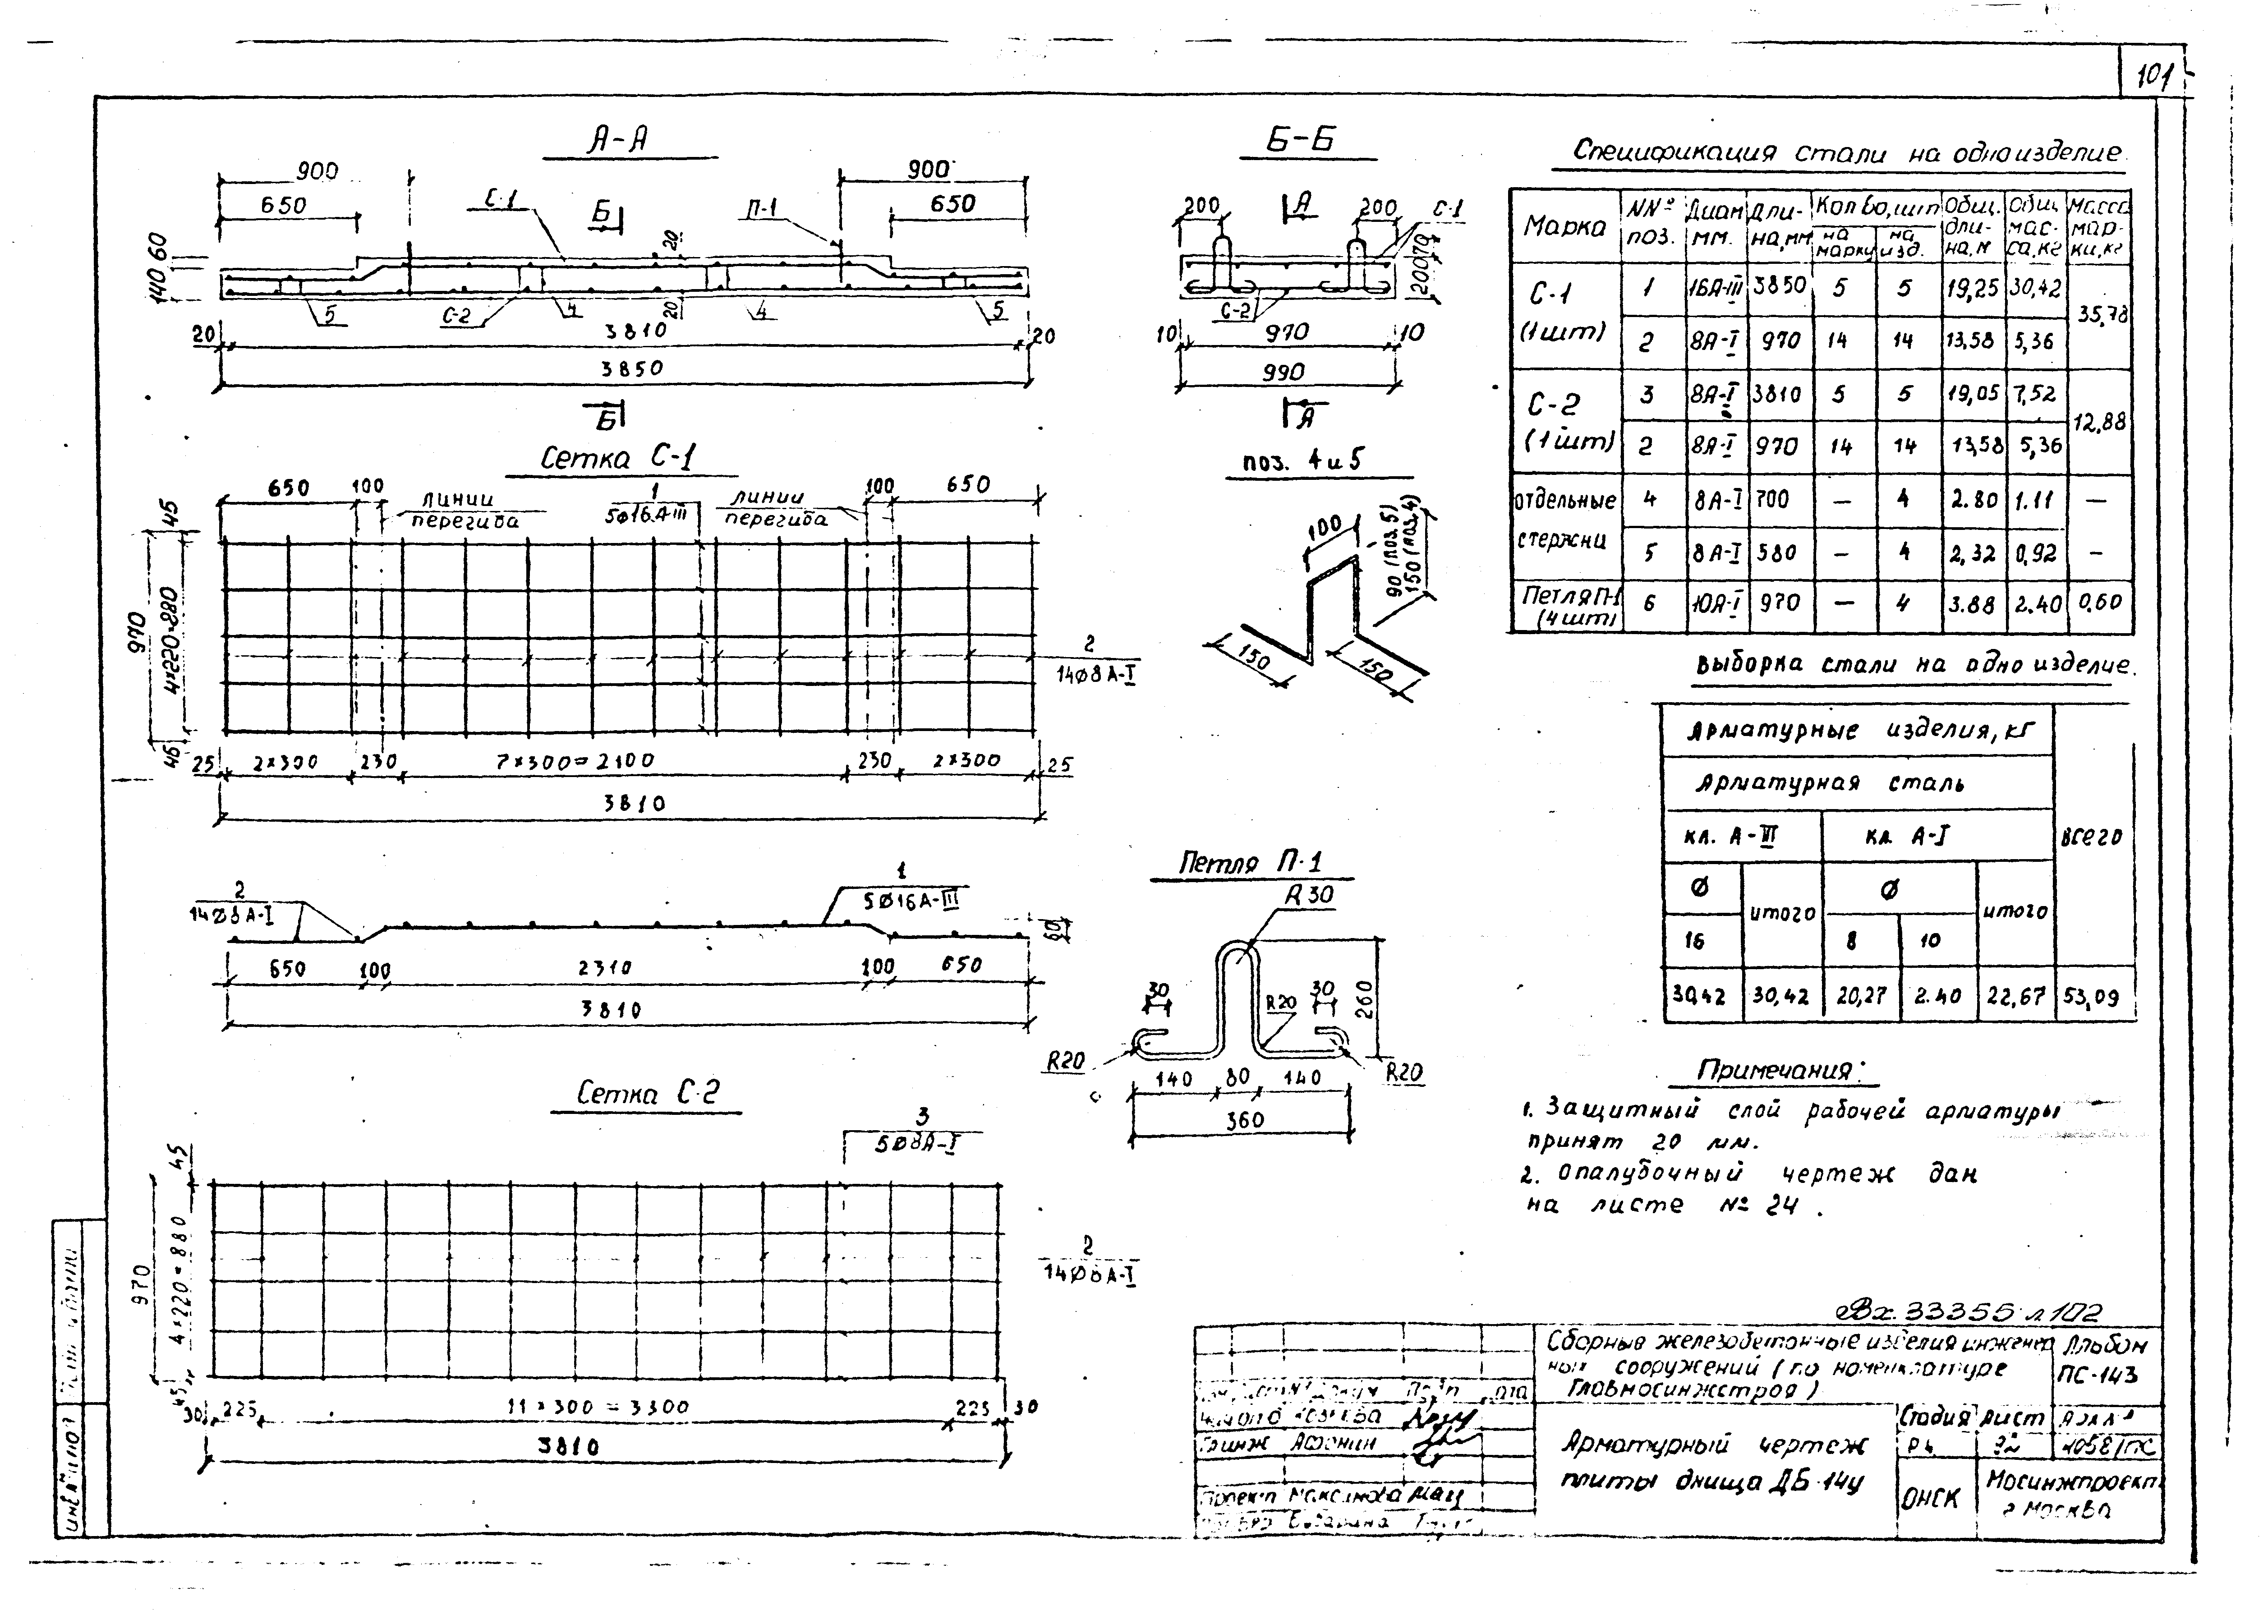 101
А-А
900
900
650
С-1
Б
П-1
650
60
140
20
5
С-2
4
20
4
5
20
3810
20
3850
Б
Б-Б
200
А
200
С-1
70
200
С-2
10
970
10
990
А
Сетка С-1
650
100
линии
перегиба
1
5ø16А-III
линии
перегиба
100
650
45
970
4×220=880
45
2
14ø8А-I
25
2×300
230
7×300=2100
230
2×300
25
3810
поз. 4 и 5
100
90 (поз.5)
150 (поз.4)
150
150
2
14ø8А-I
1
5ø16А-III
60
650
100
2310
100
650
3810
Петля П-1
R30
30
R20
30
260
R20
R20
140
80
140
360
Сетка С-2
3
5ø8А-I
45
970
4×220=880
45
2
14ø8А-I
30
225
11×300=3300
225
30
3810
Спецификация стали на одно изделие.
Марка
NNº поз.
Диам мм.
Дли-на, мм
Кол-во, шт
на марку
на изд.
Общ. дли-на, м
Общ мас-са, кг
Масса мар-ки, кг
С-1 (1шт)
1 16А-III 3850 5 5 19,25 30,42
35,78
2 8А-I 970 14 14 13,58 5,36
С-2 (1шт)
3 8А-I 3810 5 5 19,05 7,52
12,88
2 8А-I 970 14 14 13,58 5,36
отдельные стержни
4 8А-I 700 — 4 2.80 1.11 —
5 8А-I 580 — 4 2,32 0,92 —
Петля П-1 (4шт)
6 10А-I 970 — 4 3.88 2.40 0,60
Выборка стали на одно изделие.
Арматурные изделия, кг
Арматурная сталь
Всего
кл. А-III
кл. А-I
ø
итого
ø
итого
16
8
10
30,42 30,42 20,27 2.40 22,67 53,09
Примечания:
1. Защитный слой рабочей арматуры
принят 20 мм.
2. Опалубочный чертеж дан
на листе № 24.
Вх. 33355 л 102
Сборные железобетонные изделия инженер
ных сооружений (по номенклатуре
Главмосинжстроя)
Альбом
ПС-143
Арматурный чертеж
плиты днища ДБ-14у
Стадия
Лист
ОНСК
Мосинжпроект
г Москва
Гл инж Афонин
Проект Максимова